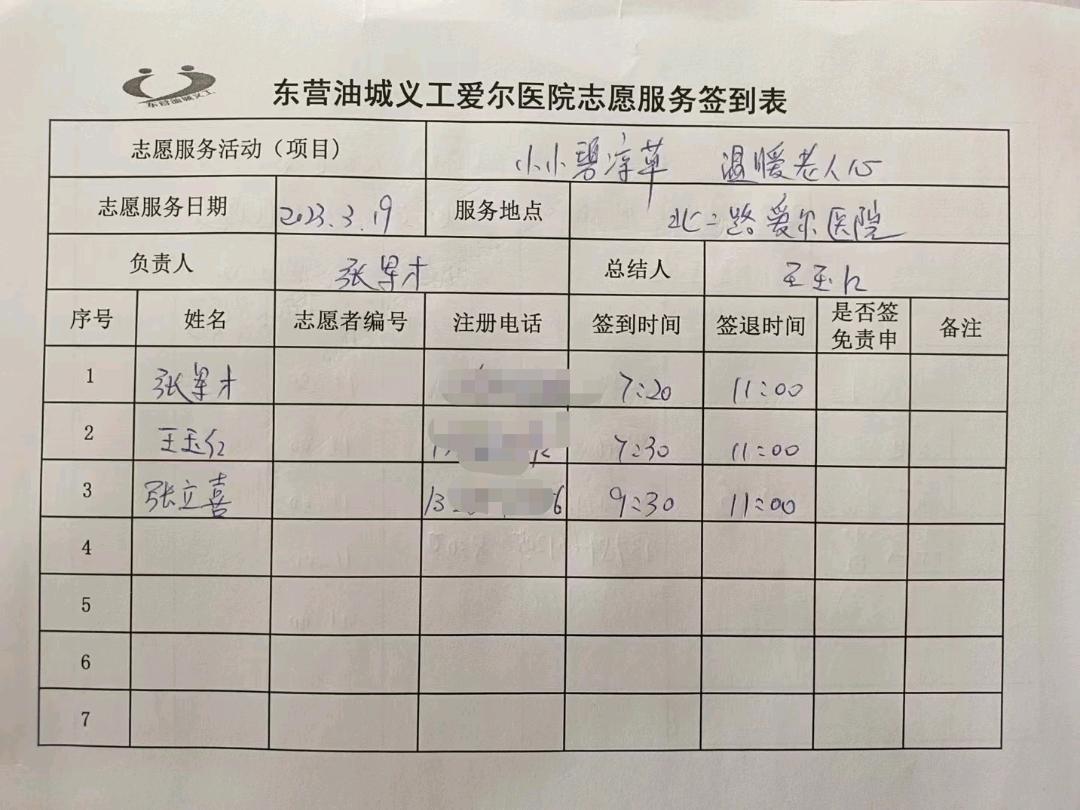 东营油城义工
东营油城义工爱尔医院志愿服务签到表
志愿服务活动（项目） 小小碧凉革 温暖老人心
志愿服务日期 2023.3.19 服务地点 北二路爱尔医院
负责人 张 总结人 王玉仁
序号 姓名 志愿者编号 注册电话 签到时间 签退时间 是否签免责申 备注
1 张 7:20 11:00
2 王玉仁 7:30 11:00
3 张立喜 13 6 9:30 11:00
4
5
6
7